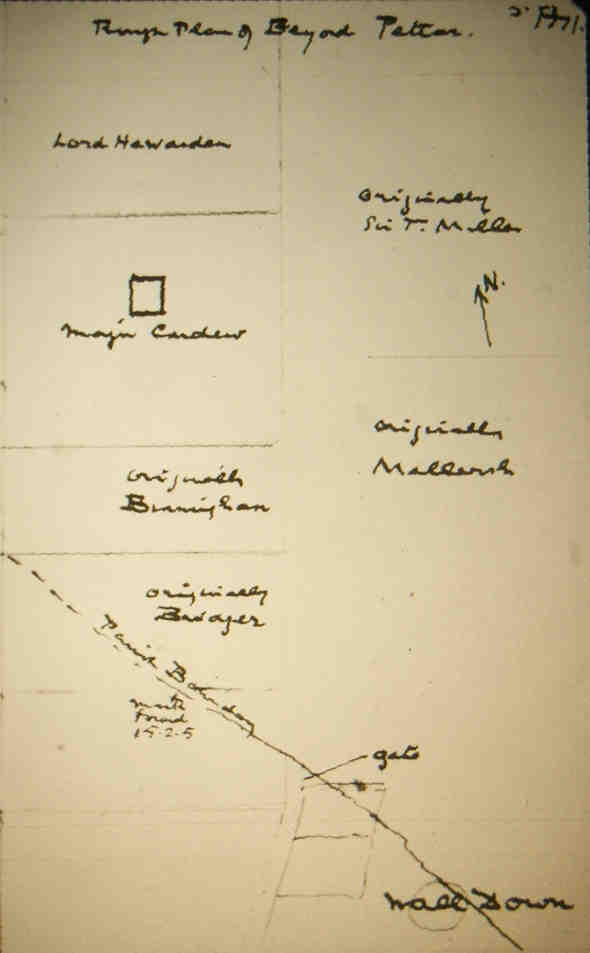 Rough Plan of Beyond Petter.
Lord Hawarden
Originally
Sir T. Miller
N.
Major Cardew
Originally
Originally
Bermighan
Originally
Bridger
Parish Boundary
found
15-2-5
gate
Wall Down